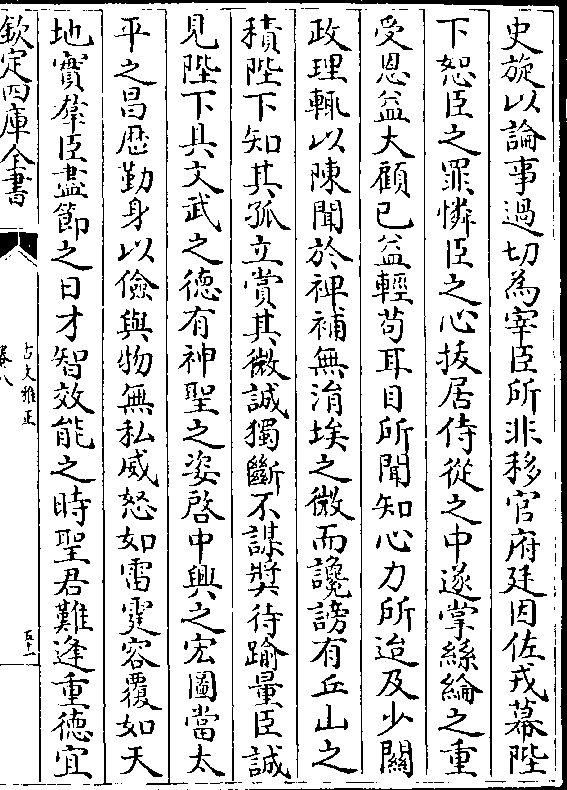 史旋以論事過切為宰臣所非移官府廷因佐戎幕陛
下恕臣之罪憐臣之心拔居侍從之中遂掌絲綸之重
受恩益大顧已益輕苟耳目所聞知心力所迨及少關
政理輒以陳聞於裨補無涓埃之微而讒謗有丘山之
積陛下知其孤立賞其微誠獨斷不謀奨待踰量臣誠
見陛下具文武之德有神聖之姿啓中興之宏圖當太
平之昌厯勤身以儉與物無私威怒如雷霆容覆如天
地實羣臣盡節之日才智效能之時聖君難逢重德宜
欽定四庫全書
古文雅正
卷八
五十一